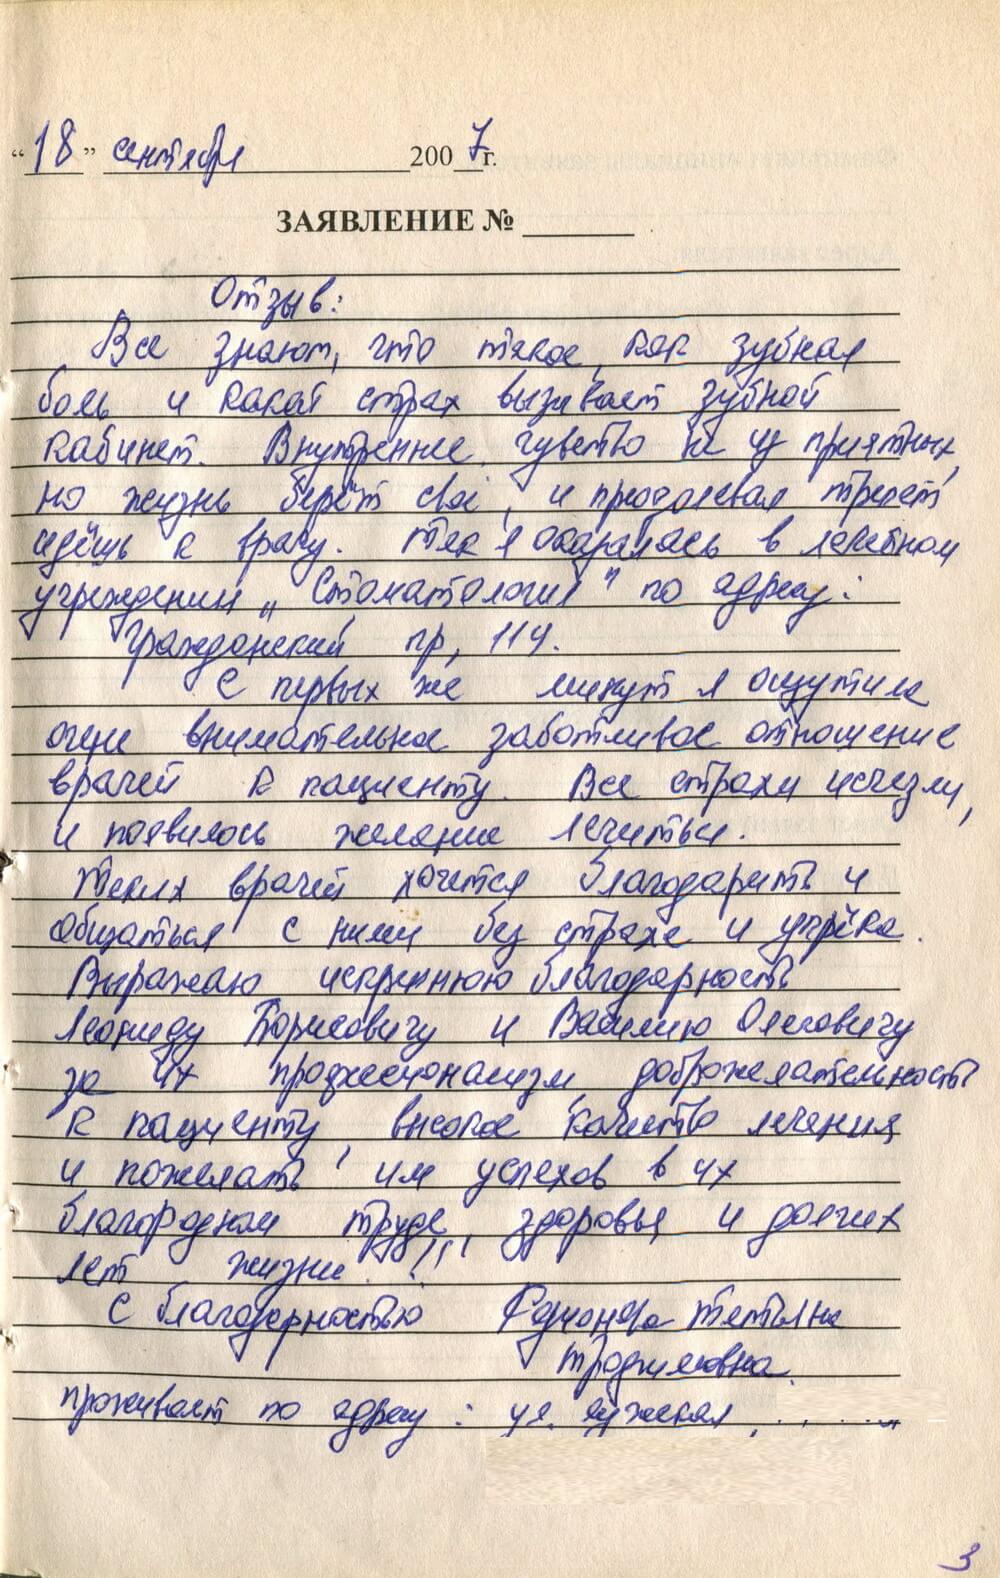 "18" сентября 2007г.
ЗАЯВЛЕНИЕ №
Отзыв:
Все знают, что такое, как зубная
боль и какой страх вызывает зубной
кабинет. Внутреннее чувство не из приятных,
но жизнь берёт своё, и преодолевая трепет
идёшь к врачу. Так я оказалась в лечебном
учреждении „Стоматология" по адресу:
Гражданский пр, 114.
С первых же минут я ощутила
очень внимательное заботливое отношение
врачей к пациенту. Все страхи исчезли,
и появилось желание лечиться.
Таких врачей хочется благодарить и
общаться с ними без страха и упрёка.
Выражаю искреннюю благодарность
Леониду Борисовичу и Василию Олеговичу
за их профессионализм, доброжелательность
к пациенту, высокое качество лечения
и пожелать им успехов в их
благородном труде, здоровья и долгих
лет жизни.!!!
С благодарностью Татьяна
Трофимовна.
проживает по адресу: ул.
3